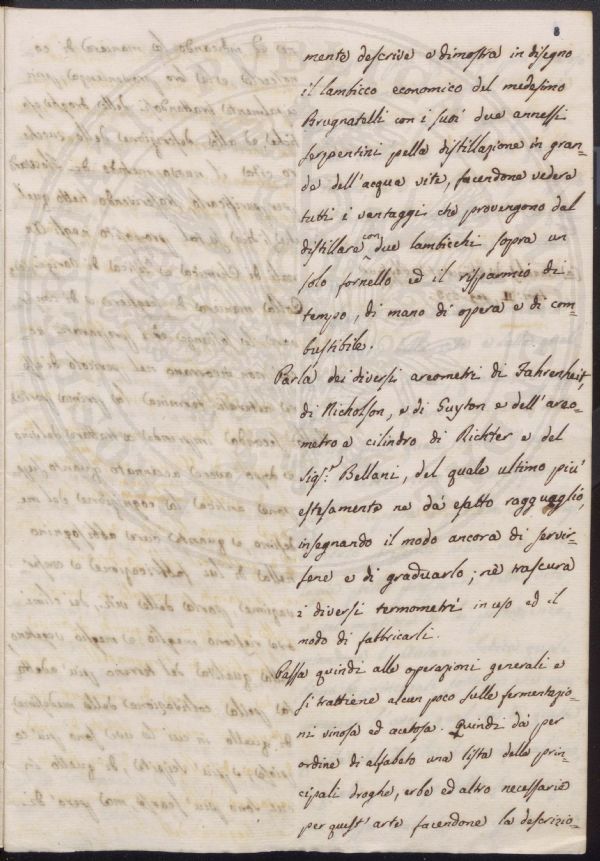 8
mente descrive e dimostra in disegno
il lambicco economico del medesimo
Brugnatelli con i suoi due annessi
serpentini pella distillazione in gran-
de dell'acqua vite, facendone vedere
tutti i vantaggi che provengono dal
distillare con due lambicchi sopra un
solo fornello ed il risparmio di
tempo, di mano di opera e di com-
bustibile.
Parla dei diversi areometri di Fahrenheit,
di Nicholson, e di Guyton e dell'areo-
metro a cilindro di Richter e del
Sigr. Bellani, del quale ultimo più
estesamente ne dà esatto ragguaglio,
insegnando il modo ancora di servir-
sene e di graduarlo; nè trascura
i diversi termometri in uso ed il
modo di fabbricarli.
Passa quindi alle operazioni generali e
si trattiene alcun poco sulle fermentazio-
ni vinosa ed acetosa. Quindi dà per
ordine di alfabeto una lista delle prin-
cipali droghe, erbe ed altro necessario
per quest'arte facendone la descrizio-